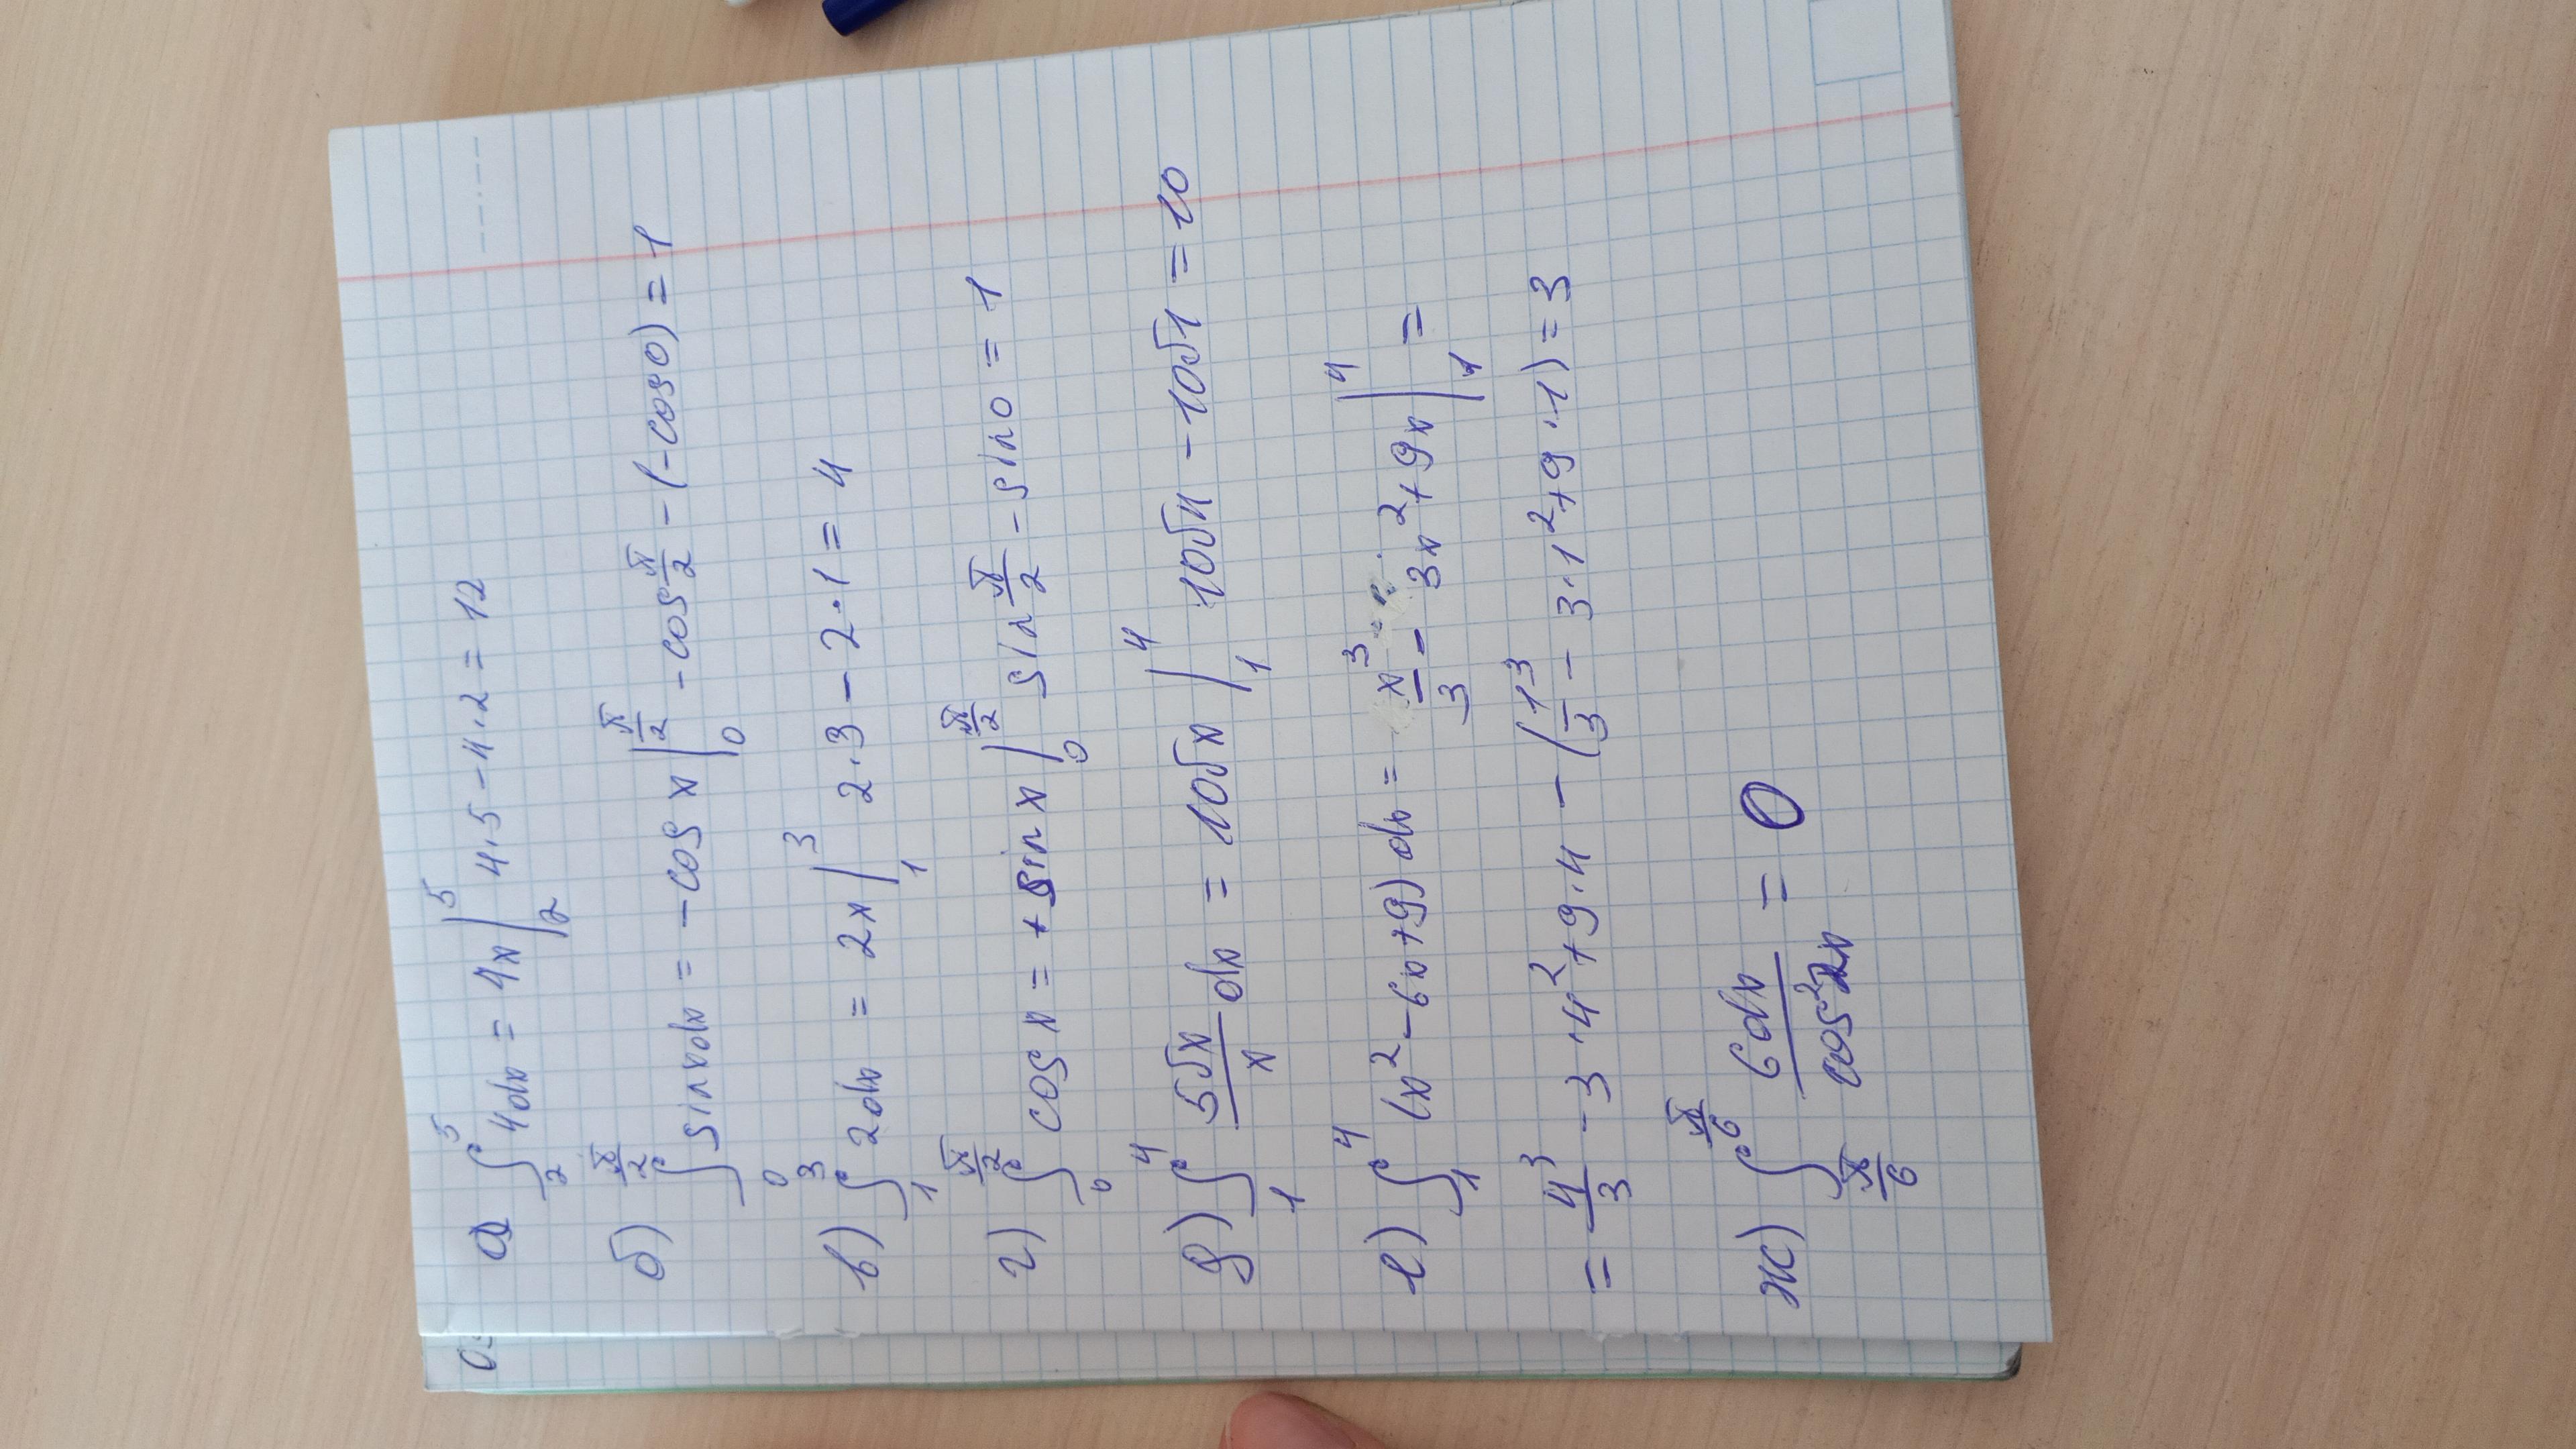 а ∫₂⁵ 4dx = 4x |₂⁵ 4·5-4·2=12
б) ∫₀^(π/2) sinxdx = -cos x |₀^(π/2) -cos π/2 -(-cos0)=1
в) ∫₁³ 2dx = 2x |₁³ 2·3-2·1=4
г) ∫₀^(π/2) cos x = + sin x |₀^(π/2) sin π/2 - sin0=1
д) ∫₁⁴ 5√x/x dx = 10√x |₁⁴ 10√4 -10√1 =10
е) ∫₁⁴ (x²-6x+9) dx = x³/3 - 3x²+9x |₁⁴ =
= 4³/3 - 3·4²+9·4 - (1³/3 - 3·1²+9·1)=3
ж) ∫_(π/6)^(π/6) 6dx/cos²2x = 0